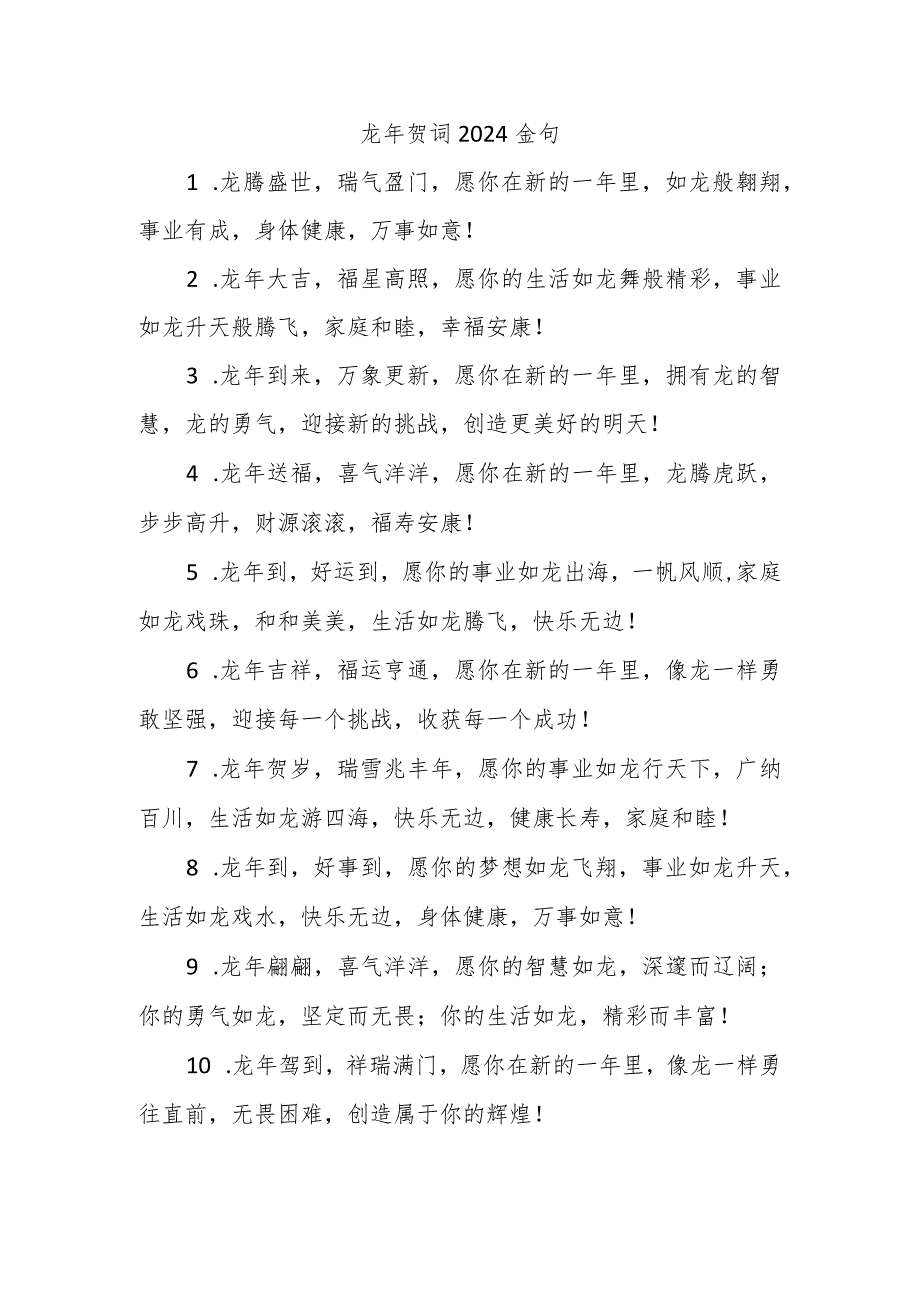 龙年贺词2024金句
1 .龙腾盛世，瑞气盈门，愿你在新的一年里，如龙般翱翔，
事业有成，身体健康，万事如意！
2 .龙年大吉，福星高照，愿你的生活如龙舞般精彩，事业
如龙升天般腾飞，家庭和睦，幸福安康！
3 .龙年到来，万象更新，愿你在新的一年里，拥有龙的智
慧，龙的勇气，迎接新的挑战，创造更美好的明天！
4 .龙年送福，喜气洋洋，愿你在新的一年里，龙腾虎跃，
步步高升，财源滚滚，福寿安康！
5 .龙年到，好运到，愿你的事业如龙出海，一帆风顺,家庭
如龙戏珠，和和美美，生活如龙腾飞，快乐无边！
6 .龙年吉祥，福运亨通，愿你在新的一年里，像龙一样勇
敢坚强，迎接每一个挑战，收获每一个成功！
7 .龙年贺岁，瑞雪兆丰年，愿你的事业如龙行天下，广纳
百川，生活如龙游四海，快乐无边，健康长寿，家庭和睦！
8 .龙年到，好事到，愿你的梦想如龙飞翔，事业如龙升天，
生活如龙戏水，快乐无边，身体健康，万事如意！
9 .龙年翩翩，喜气洋洋，愿你的智慧如龙，深邃而辽阔；
你的勇气如龙，坚定而无畏；你的生活如龙，精彩而丰富！
10 .龙年驾到，祥瑞满门，愿你在新的一年里，像龙一样勇
往直前，无畏困难，创造属于你的辉煌！